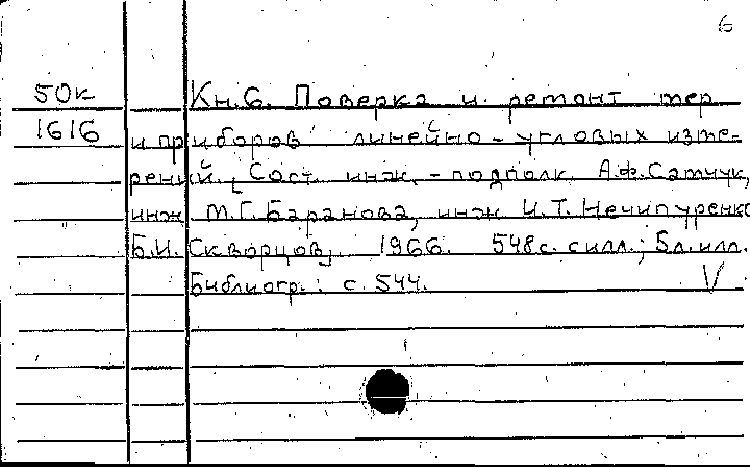 6
50к Кн.6. Поверка и ремонт мер
1616 и приборов линейно-угловых изме-
рений. [Сост. инж.-подполк. А.Ф.Самчук,
инж М.Г.Баранова, инж И.Т.Нечипуренко
Б.И.Скворцов] 1966. 548с. силл.; 5л.илл.
Библиогр.: с.544. V